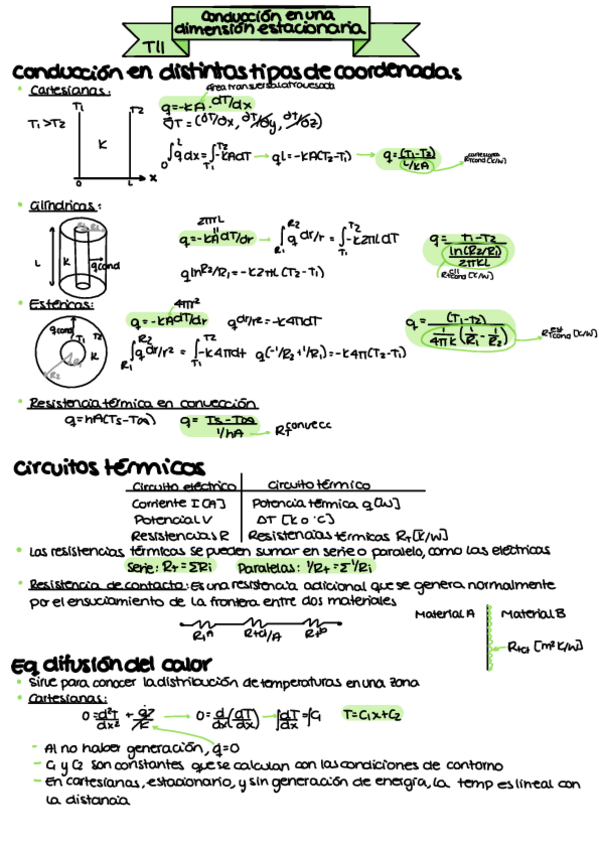 T11
Conducción en una
dimensión estacionaria
Conducción en distintos tipos de coordenadas
• Cartesianas:
área transversal atravesada
T1>T2
T1
T2
K
0
L
x
q=-kA·dT/dx
∇T=(∂T/∂x, ∂T/∂y, ∂T/∂z)
0∫L q dx = T1∫T2 -kAdT → qL=-kA(T2-T1) → q=(T1-T2)/(L/kA)
cartesiana
RTcond [K/W]
• Cilíndricas:
L
K
qcond
2πrL
q=-kA dT/dr → R1∫R2 q dr/r = T1∫T2 -k2πLdT
q ln R2/R1=-k2πL(T2-T1)
q= (T1-T2)/(ln(R2/R1)/2πkL)
RTcond cil [K/W]
• Esféricas:
qcond
T1
T2
K
4πr²
q=-kA dT/dr q dr/r²=-k4πdT
R1∫R2 q dr/r² = T1∫T2 -k4πdt q(-1/R2+1/R1)=-k4π(T2-T1)
q= (T1-T2)/(1/4πk (1/R1 - 1/R2))
RTcond esf [K/W]
• Resistencia térmica en convección
q=hA(Ts-T∞) q= (Ts-T∞)/(1/hA) → RT convecc
Circuitos térmicos
Circuito eléctrico Circuito térmico
Corriente I [A] Potencia térmica q [W]
Potencial V ΔT [K o °C]
Resistencias R Resistencias térmicas RT [K/W]
• Las resistencias térmicas se pueden sumar en serie o paralelo, como las eléctricas
Serie: RT=ΣRi Paralelas: 1/RT=Σ1/Ri
• Resistencia de contacto: Es una resistencia adicional que se genera normalmente
por el ensuciamiento de la frontera entre dos materiales
Material A
Material B
RTct [m²K/W]
RTA RTct/A RTB
Eq difusión del calor
• Sirve para conocer la distribución de temperaturas en una zona
• Cartesianas:
0=d²T/dx² + q̇/k → 0=d/dx(dT/dx) → ∫dT/dx=∫C1 T=C1x+C2
- Al no haber generación, q̇=0
- C1 y C2 son constantes que se calculan con las condiciones de contorno
- En cartesianas, estacionario, y sin generación de energía, la temp es lineal con
la distancia